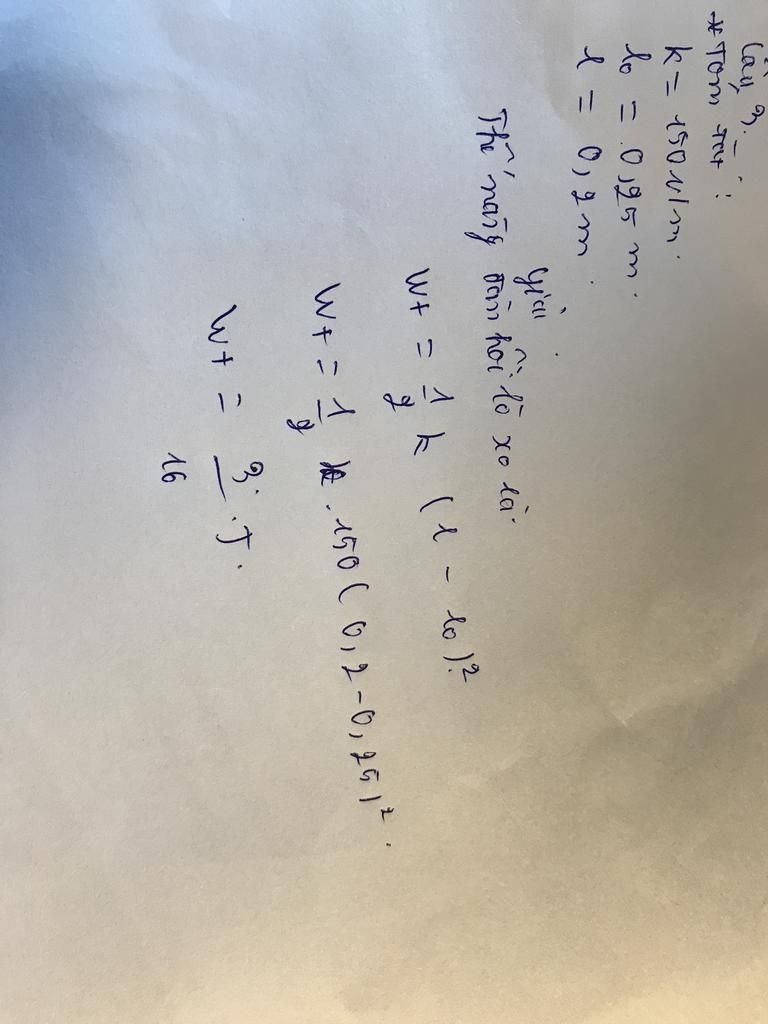 Câu 3.
* Tóm tắt:
k = 150 N/m.
l0 = 0,25 m.
l = 0,2 m.
Giải
Thế năng đàn hồi lò xo là.
Wt = 1/2 k (l - l0)².
Wt = 1/2 . 150 (0,2 - 0,25)².
Wt = 3/16 . J.